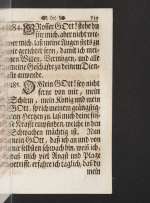 ) o ( 719
184. GRosser GOtt! stehe du
für mich, aber nicht wi-
der mich, laß meine Augen stets zu
dir gerichtet seyn, damit ich mei-
nen Willen, Vermögen, und alle
meine Geschäfte zu deinem Dien-
ste anwende.
185. MEin GOtt! sey nicht
ferne von mir, mein
Schirm, mein König und mein
GOtt, sprich meinem geängstig-
ten Hertzen zu, laß mich deine süsse
Kraft empfinden, welche in den
Schwachen mächtig ist. Dan
mein GOtt, daß ich an und von
mir selbsten schwach bin, weiß ich,
das mich viel Angst und Plage
betrift, erfahre ich täglich, daß du
mein